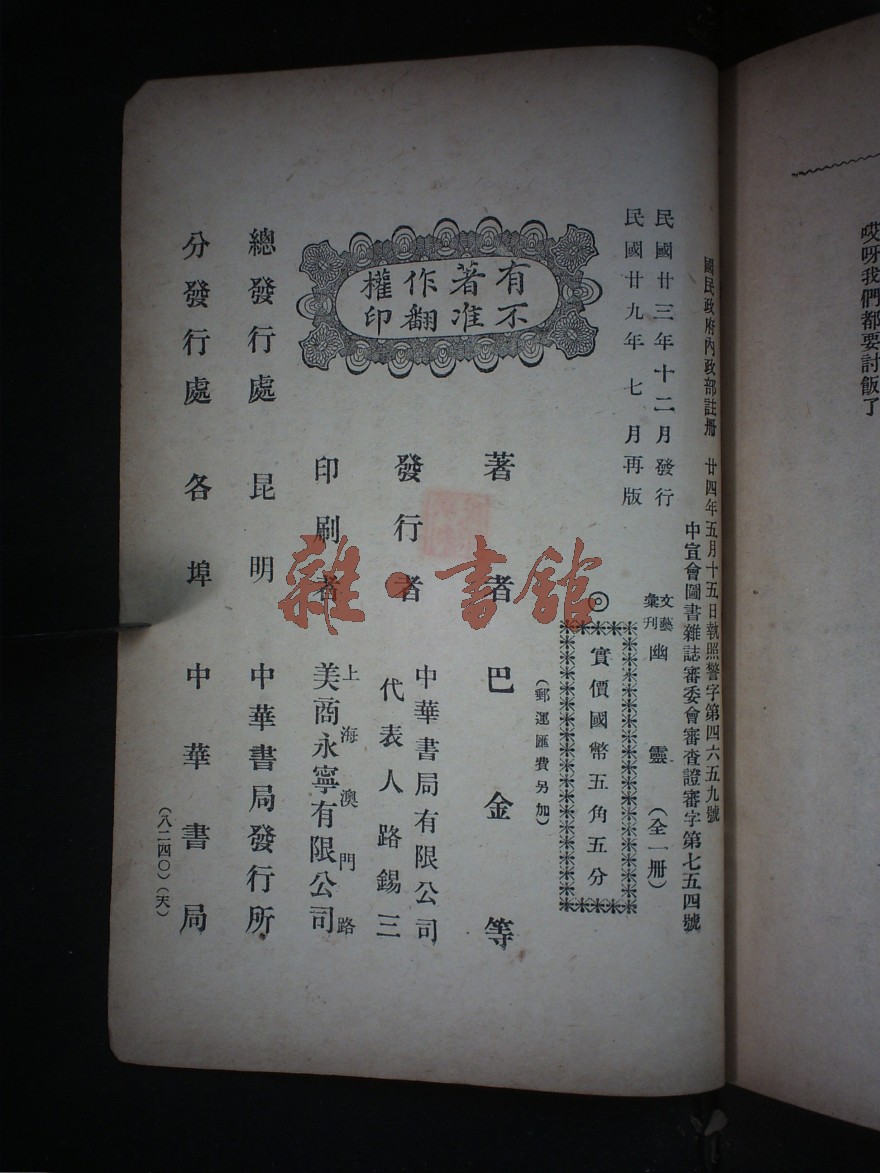 哎呀我們都要討飯了
國民政府內政部註册 廿四年五月十五日執照警字第四六五九號
中宣會圖書雜誌審委會審查證審字第七五四號
民國廿三年十二月發行
民國廿九年七月再版
文藝彙刊 幽靈 (全一册)
◎實價國幣五角五分
(郵運匯費另加)
有著作權
不准翻印
著者 巴金等
發行者 中華書局有限公司
代表人路錫三
印刷者 上海澳門路
美商永寧有限公司
總發行處 昆明 中華書局發行所
分發行處 各埠 中華書局
(八二四〇)(天)
雜·書館